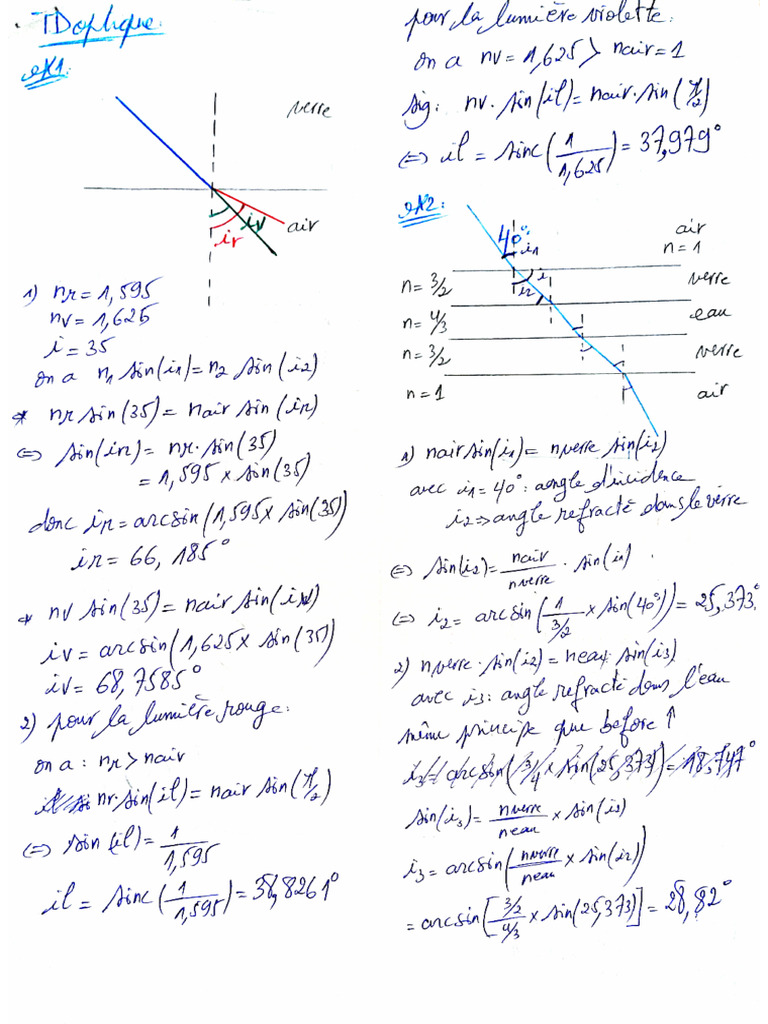 TD optique:
ex1:
verre
air
iv
ir
1) nr = 1,595
nv = 1,625
i = 35
on a n1 sin(i1) = n2 sin(i2)
* nr sin(35) = nair sin(ir)
<=> sin(ir) = nr. sin(35)
= 1,595 x sin(35)
donc ir = arcsin(1,595 x sin(35))
ir = 66,185°
* nv sin(35) = nair sin(iv)
iv = arcsin(1,625 x sin(35))
iv = 68,7585°
2) pour la lumière rouge:
on a : nr > nair
nr.sin(il) = nair sin(π/2)
<=> sin(il) = 1/1,595
il = sinc(1/1,595) = 38,8261°
pour la lumière violette:
on a nv = 1,625 > nair = 1
sig: nv. sin(il) = nair. sin(π/2)
<=> il = sinc(1/1,625) = 37,979°
ex2:
40° i1
air
n = 1
i
i2
n = 3/2 verre
n = 4/3 eau
n = 3/2 verre
n = 1 air
1) nair sin(i1) = nverre sin(i2)
avec i1 = 40° : angle d'incidence
i2 => angle refracté dans le verre
<=> sin(i2) = nair/nverre . sin(i1).
<=> i2 = arcsin(1/(3/2) x sin(40°)) = 25,373°.
2) nverre. sin(i2) = neau. sin(i3)
avec i3: angle refracté dans l'eau
même principe que before ↑
i3 = arcsin(3/4 x sin(25,373)) = 18,747°
sin(i3) = nverre/neau x sin(i2)
i3 = arcsin(nverre/neau x sin(i2))
= arcsin[(3/2)/(4/3) x sin(25,373)] = 28,82°